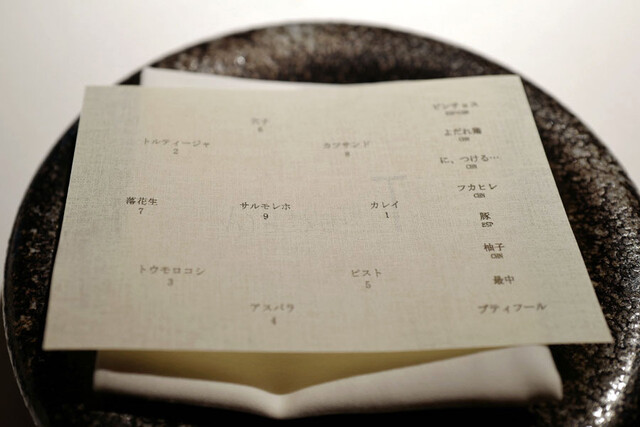 穴子
6
トルティージャ
2
カツサンド
8
落花生
7
サルモレホ
9
カレイ
1
トウモロコシ
3
ピスト
5
アスパラ
4
ピンチョス
よだれ鶏
に、つける…
フカヒレ
豚
柚子
最中
プティフール